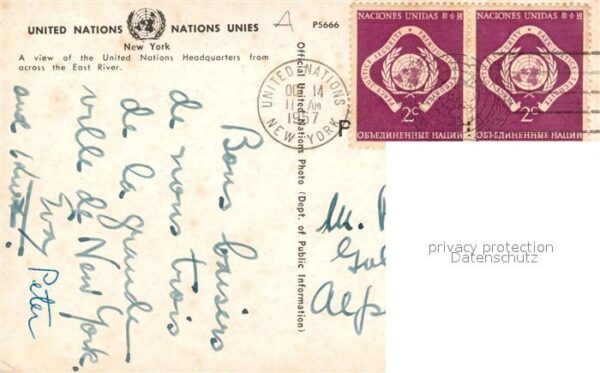 UNITED NATIONS NATIONS UNIES
New York
A view of the United Nations Headquarters from
across the East River.
A
P5666
Official United Nations Photo (Dept. of Public Information)
UNITED NATIONS
OCT 14
11 AM
1957
NEW YORK
P
NACIONES UNIDAS
PEACE JUSTICE SECURITY
PAIX JUSTICE SECURITE
2c
ОБЪЕДИНЕННЫЕ НАЦИИ
NACIONES UNIDAS
PEACE JUSTICE SECURITY
PAIX JUSTICE SECURITE
2c
ОБЪЕДИНЕННЫЕ НАЦИИ
Bons baisers
de nous trois
de la grande
ville de New York.
Eva Peter
and
M.
privacy protection
Datenschutz